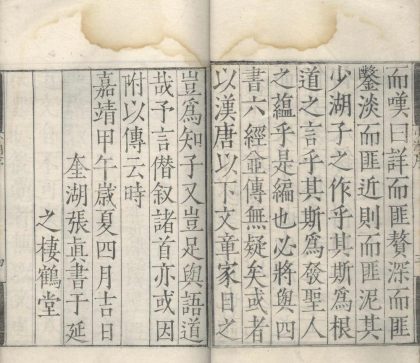 而嘆曰詳而匪贅深而匪
鑿淡而匪近則而匪泥其
少湖子之作乎其斯爲根
道之言乎其斯爲發聖人
之蘊乎是編也必將與四
書六經並傳無疑矣或者
以漢唐以下文章家目之
豈爲知子又豈足與語道
哉予言僭叙諸首亦或因
附以傳云時
嘉靖甲午歲夏四月吉日
奎湖張真書于延
之棲鶴堂